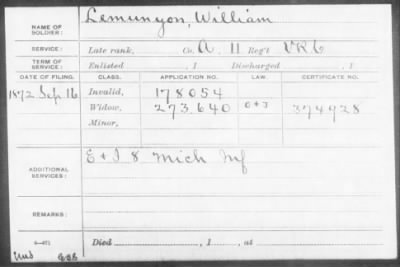 NAME OF SOLDIER: Lemunyon, William
SERVICE: Late rank, Co. A. 11 Reg't VRC
TERM OF SERVICE: Enlisted , 1 Discharged , 1
DATE OF FILING. CLASS. APPLICATION NO. LAW. CERTIFICATE NO.
1872 Sep 16 Invalid, 178054
Widow, 273.640 374928
Minor,
ADDITIONAL SERVICES: E & I 8 Mich Inf
REMARKS:
Died , 1 , at